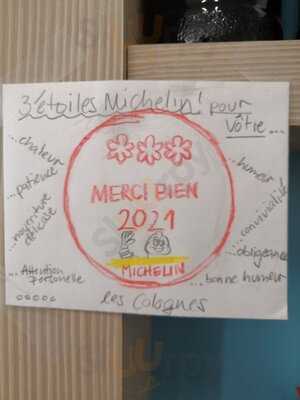 3 étoiles Michelin! pour
vôtre...
...chaleur
...patience
...nourriture
délicate
...Attention
personelle
MERCI BIEN
2021
MICHELIN
...humeur
...convivialité
...obligeance
...bonne humeur
les Colognes